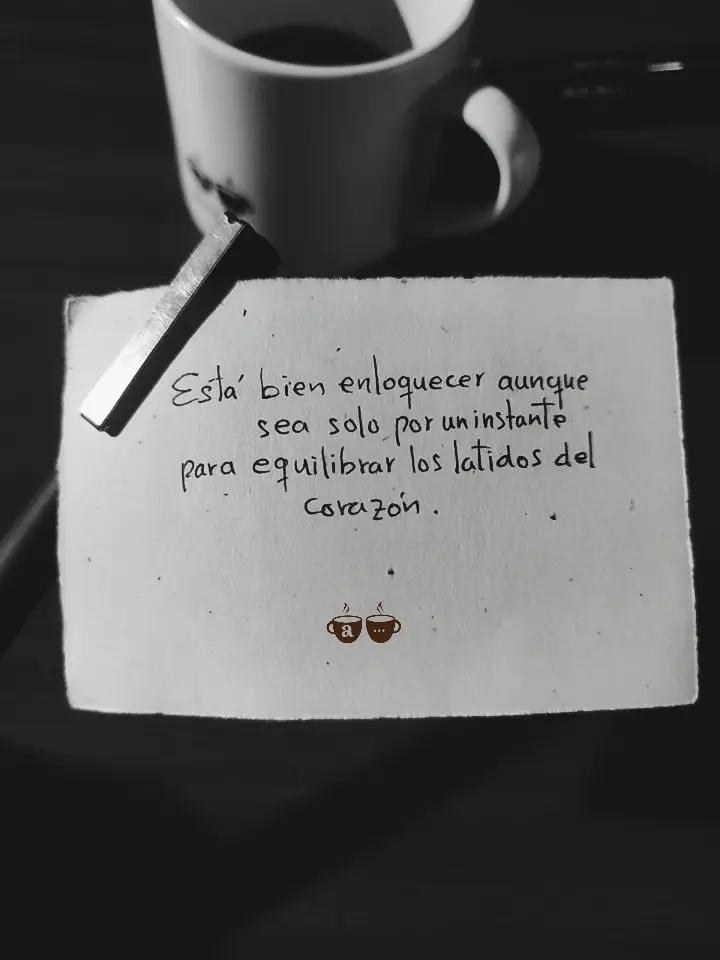 Está bien enloquecer aunque
sea solo por un instante
para equilibrar los latidos del
corazón.
a ...